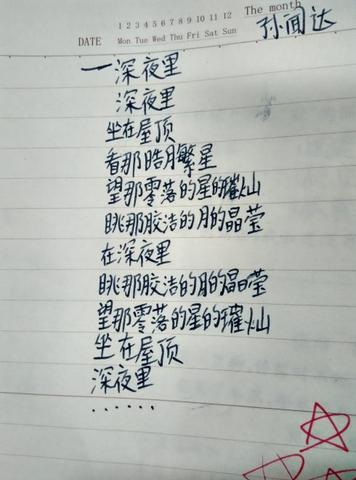 The month
1 2 3 4 5 6 7 8 9 10 11 12
孙闻达
DATE Mon Tue Wed Thu Fri Sat Sun
一深夜里
深夜里
坐在屋顶
看那皓月繁星
望那零落的星的璀灿
眺那胶洁的月的晶莹
在深夜里
眺那胶洁的月的晶莹
望那零落的星的璀灿
坐在屋顶
深夜里
······